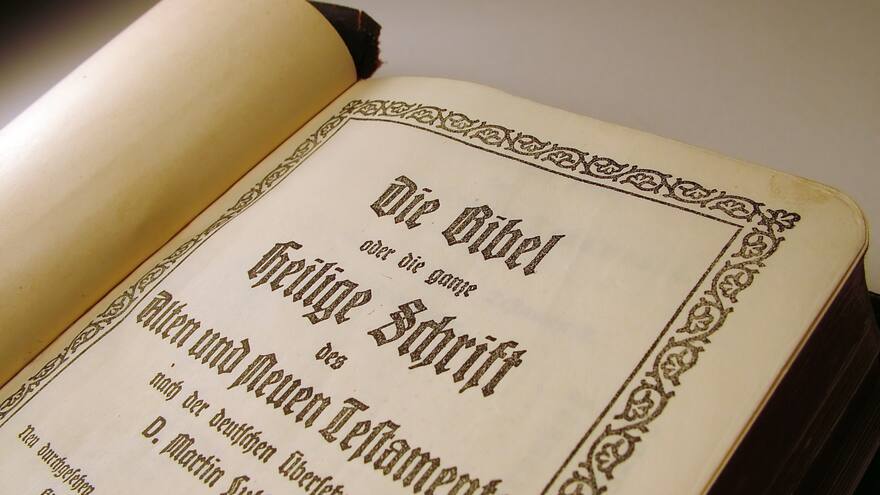 Die Bibel
oder die ganze
Heilige Schrift
des
Alten und Neuen Testament
nach der deutschen
D. Martin
Neu durchgesehen